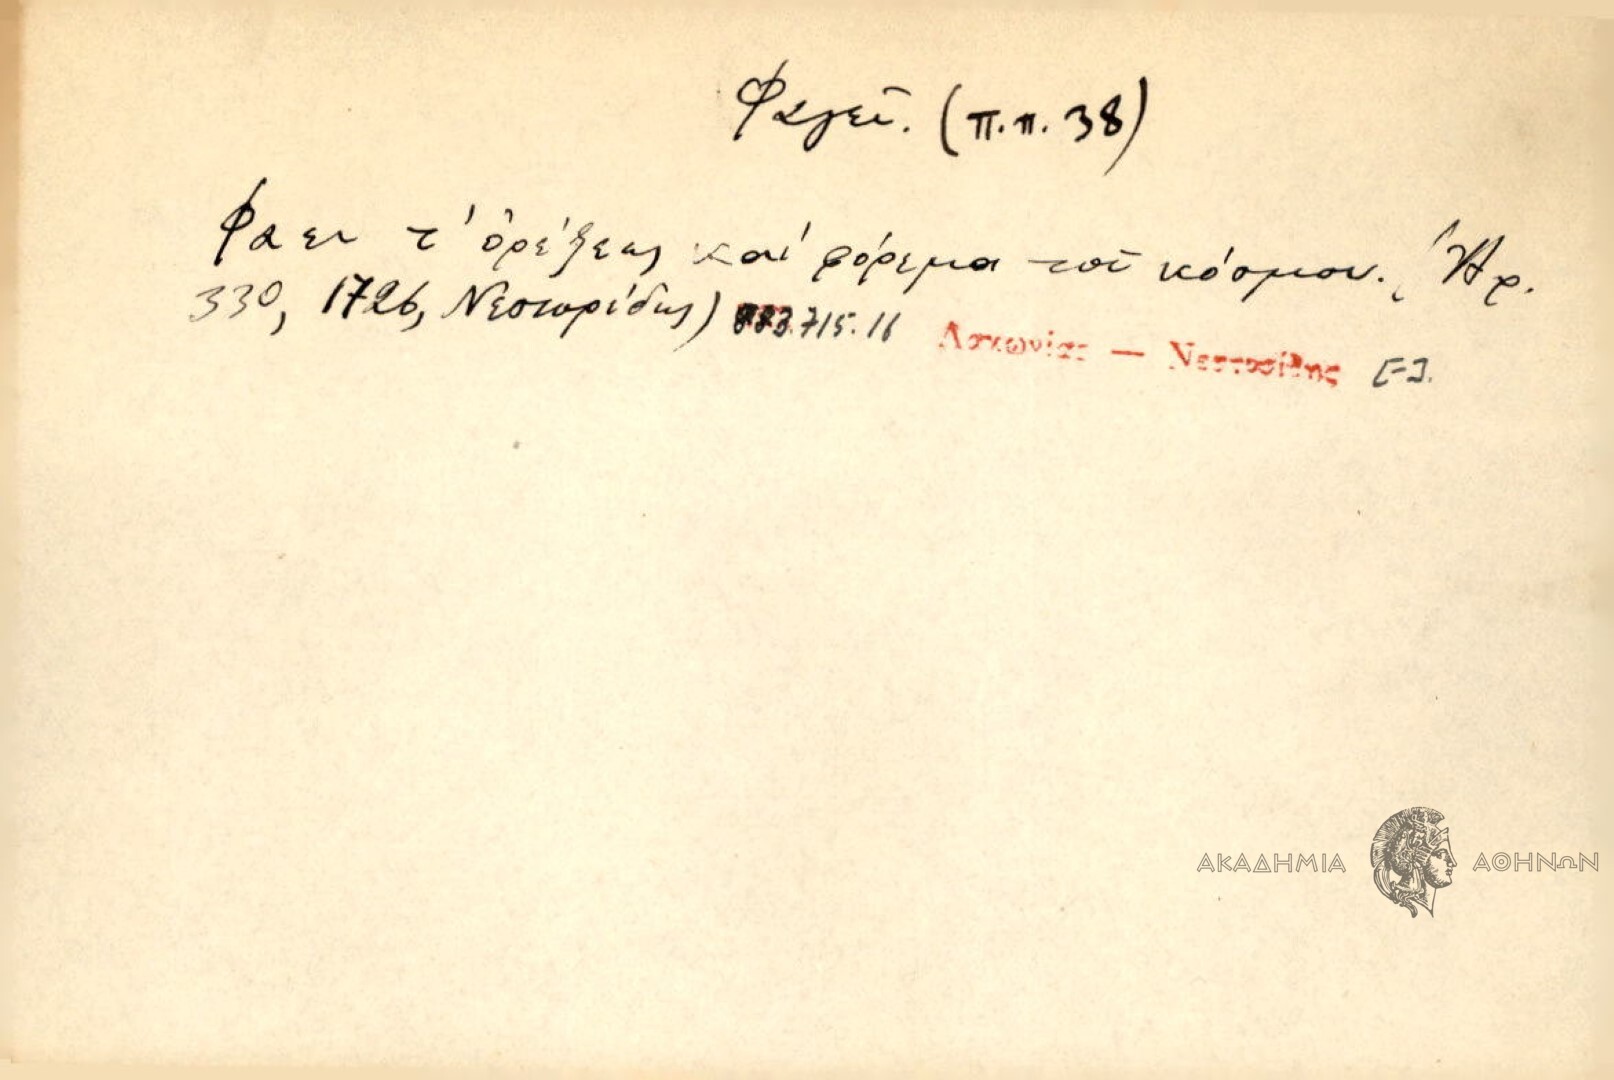 Φαγεῖ. (π.π. 38)
Φαει τ' ὀρέξεως καί φόρεμα τοῦ κόσμου. (Ἀρ.
330, 1726, Νεστορίδης) 883.715.16 Λακωνίας — Νεστορίδης [-].
ΑΚΑΔΗΜΙΑ ΑΘΗΝΩΝ